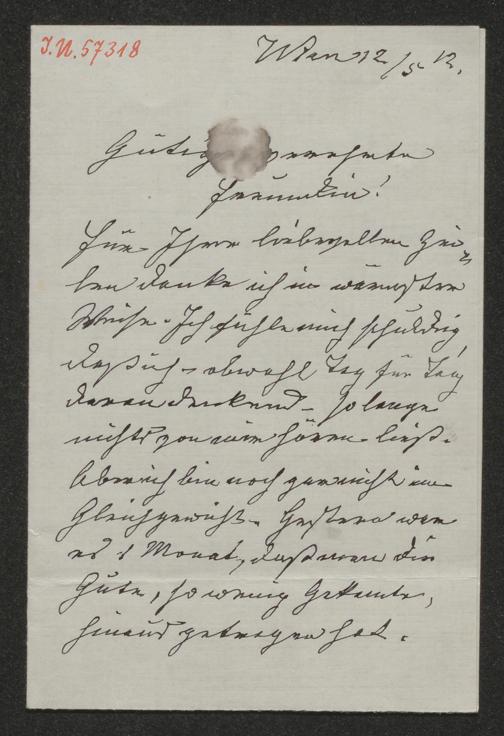 I.N. 57318
Wien 12/5 12.
verehrte
Freundin!
Für Ihre liebevollen Zei-
len danke ich in wärmster
Weise. Ich fühle mich schuldig,
daß ich – obwohl Tag für Tag
daran denkend – so lange
nichts von mir hören ließ.
Aber ich bin noch gar nicht im
Gleichgewicht. Gestern war
es 1 Monat, daß man die
Gute, so wenig Gekannte,
hinaus getragen hat.